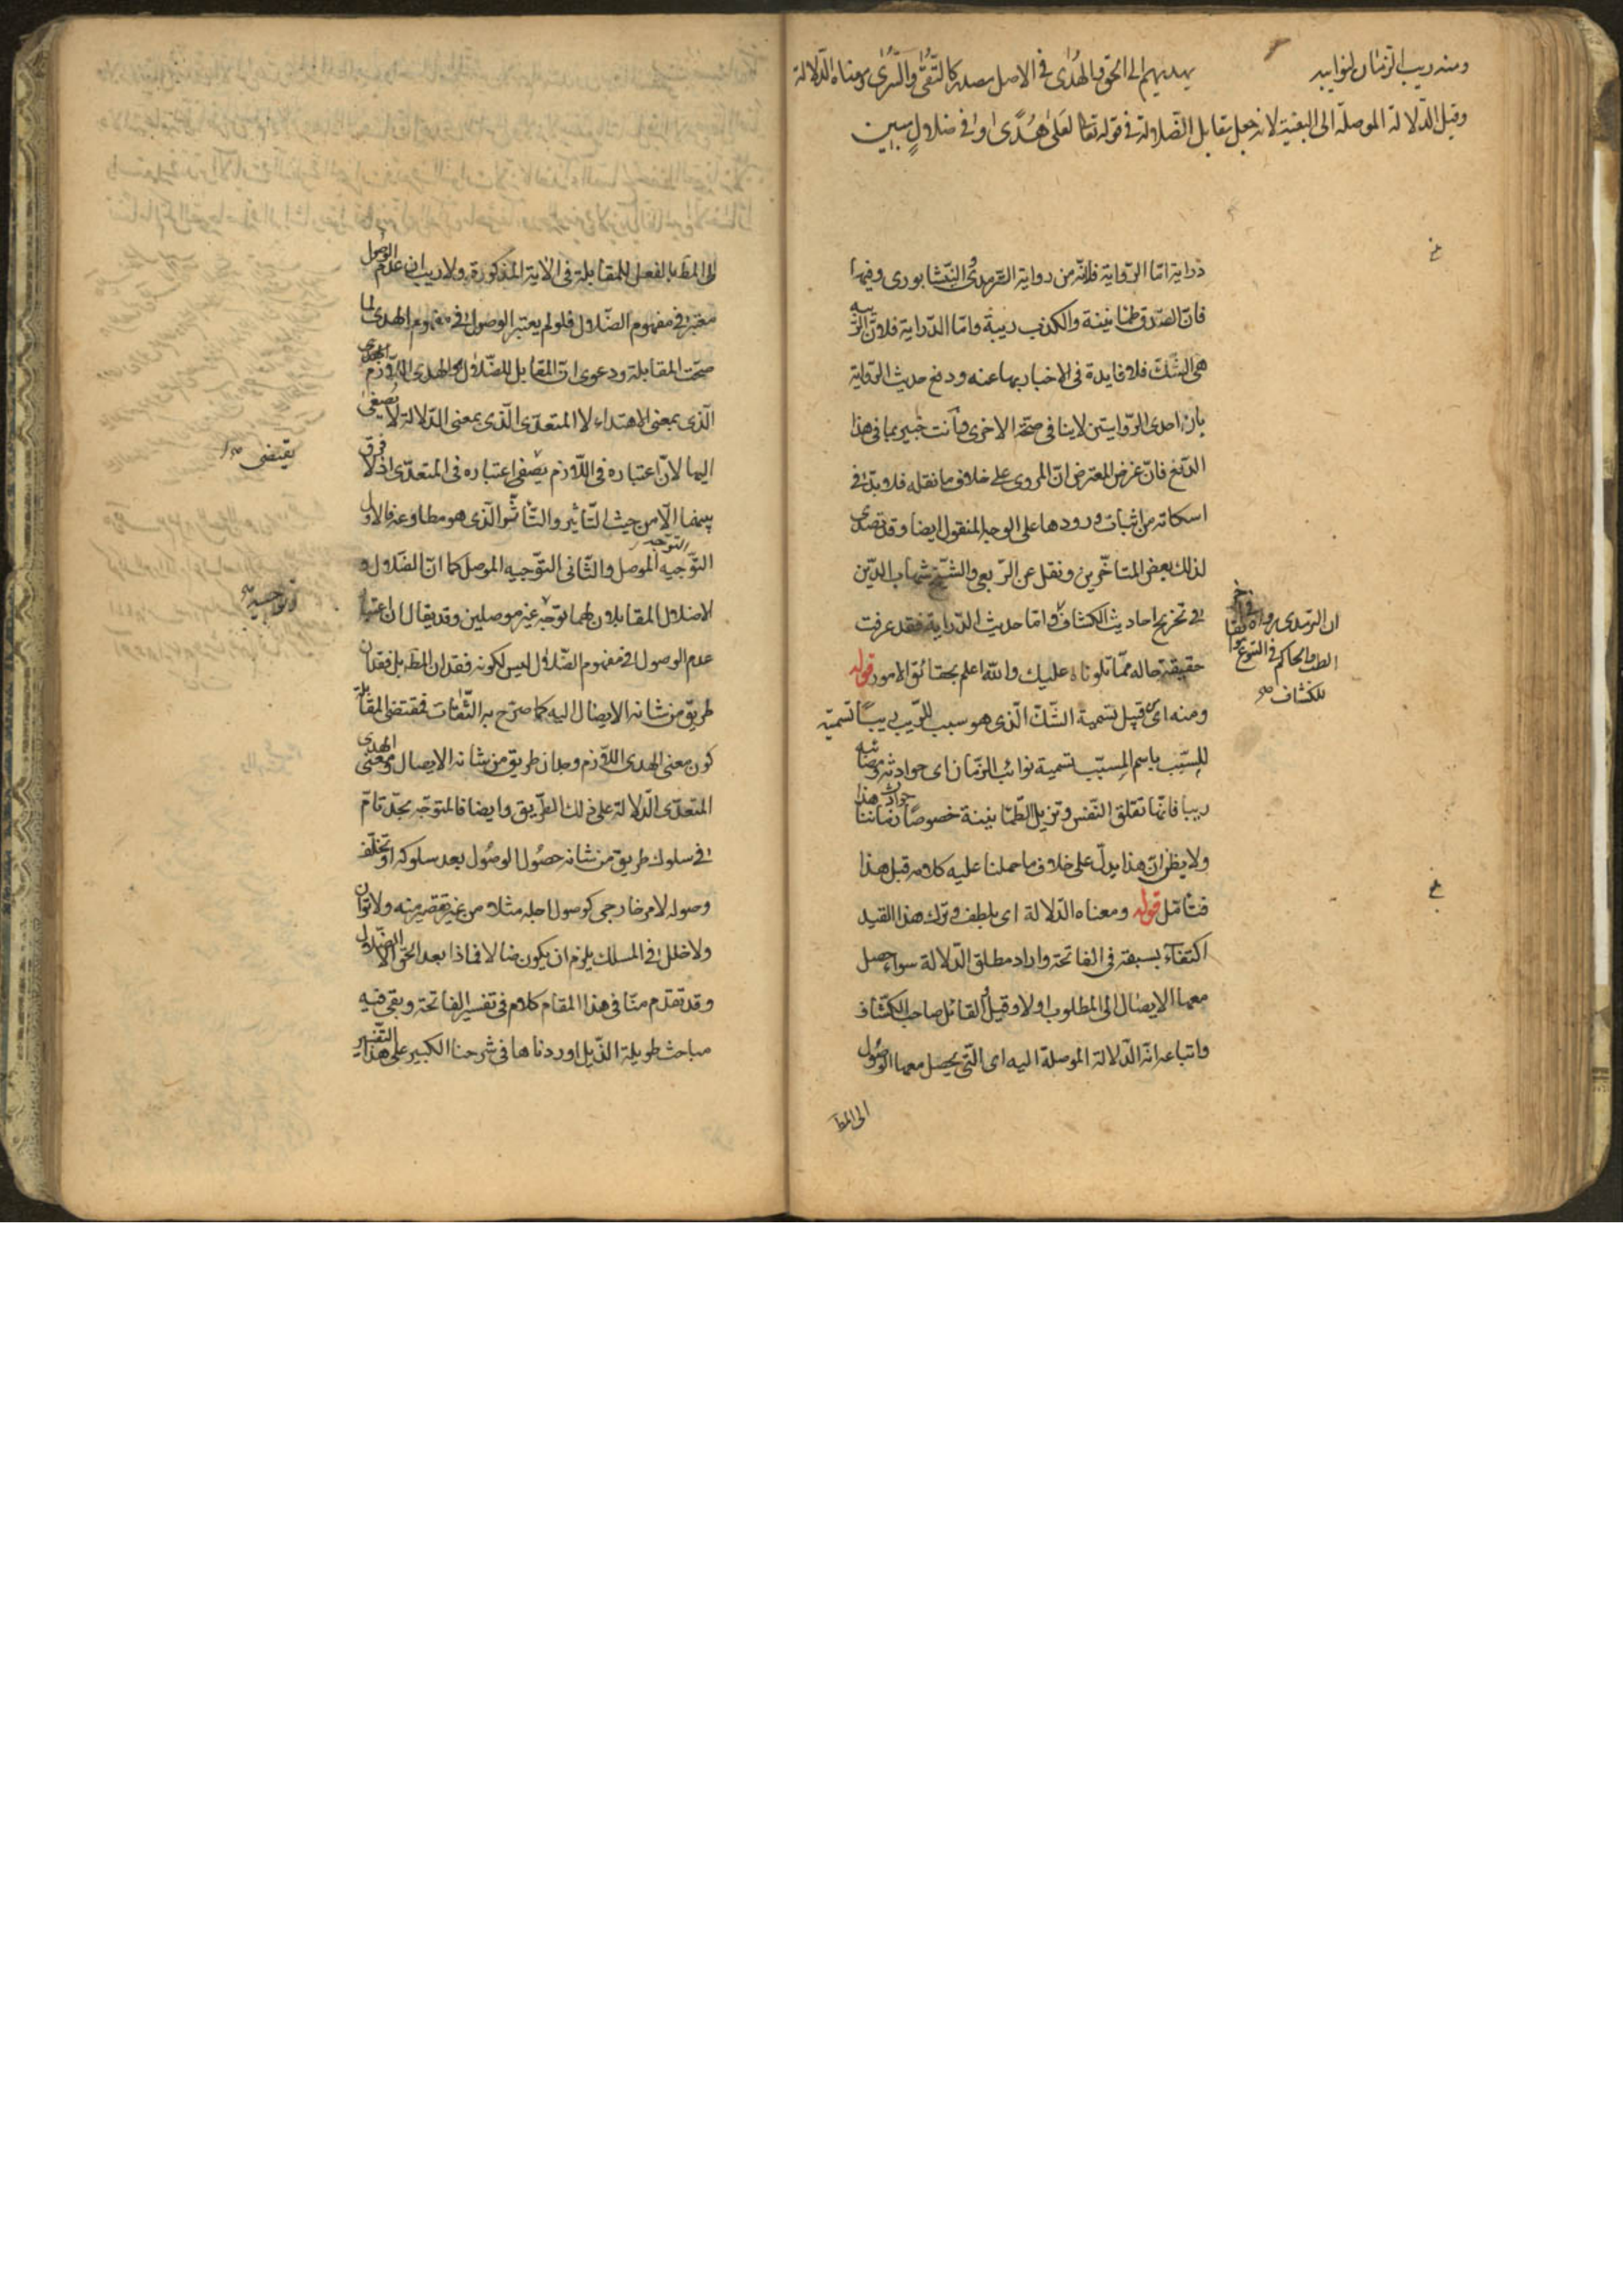 ومنه ريب الزمان لنوايبه
يهديهم الى الحق والهُدٰى فى الاصل مصدر كالتُّقٰى والسُّرٰى ومعناه الدّلالة
وقيل الدّلالة الموصلة الى البغية لانه جعل مقابل الضّلالة فى قوله تعا لعلىٰ هُدًى اوْ فى ضلالٍ مبين
دراية امّا الرّواية فلانّه من رواية الترمذى النيشابورى وفيها
فانّ الصّدق طمانينة والكذب ريبة وامّا الدّراية فلانّ الرّيبه
هى الشّكّ فلا فايدة فى الاخبار بها عنه ودفع حديث الرّواية
بان احدى الرّوايتين لا ينافى صحّة الاخرى وانت خبير بما فى هذا
الدّفع فانّ غرض المعترض انّ المروى على خلاف ما نقله فلا بدّ فى
اسكاته من اثبات ورودها على الوجه المنقول ايضا وقد تصدى
لذلك بعض المتاخّرين ونقل عن الرّبعى والشّيخ شهاب الدّين
فى تخريج احاديث الكشاف وامّا حديث الدّراية فقد عرفت
حقيقة حاله ممّا تلوناه عليك والله اعلم بحقائق الامور قوله
ومنه اى من قبيل تسمية الشّكّ الّذى هو سبب للرّيب ريبًا تسمية
للسّبب باسم المسبّب تسمية نوائب الزّمان اى حوادثه ومصائبه
ريبا فانّها تقلق النّفس وتزيل الطّمانينة خصوصًا حوادث زماننا هذا
ولا يظن انّ هذا يدلّ على خلاف ما حملنا عليه كلامه قبل هذا
فتامّل قوله ومعناه الدّلالة اى بلطف وترك هذا القيد
اكتفاءً بسبقه فى الفاتحة واراد مطلق الدّلالة سواء حصل
معها الايصال الى المطلوب اولا وقيل القائل صاحب الكشّاف
واتباعه انّه الدّلالة الموصلة اليه اى الّتى يحصل معها الوصول
الى المط
ان الترمذى رواه فى آخر
الطب والحاكم فى البيوع
للكشاف صح
الى المط بالفعل للمقابلة فى الاية المذكورة ولا ريب ان عدم الوصول
معتبر فى مفهوم الضّلال فلو لم يعتبر الوصول فى مفهوم الهدى لما
صحّت المقابلة ودعوى انّ المقابل للضّلال هو الهدى اللّازم
الّذى بمعنى الاهتداء لا المتعدّى الّذى بمعنى الدّلالة لا يصغى
اليها لانّ اعتباره فى اللّازم يقتضى اعتباره فى المتعدّى اذ لا فرق
بينهما الّا من حيث التّاثير والتّاثّر الّذى هو مطاوعه فالاول
التّوجّه الموصل والثّانى التّوجيه الموصل كما انّ الضّلال و
الاضلال المقابلان لهما توجّه غير موصلين وقد يقال ان اعتبار
عدم الوصول فى مفهوم الضّلال ليس لكونه فقدان المط بل فقدان
طريق من شانه الايصال اليه كما صرّح به الثّقات فمقتضى المقابلة
كون معنى الهدى اللّازم وجدان طريق من شانه الايصال ومعنى الهدى
المتعدّى الدّلالة على ذلك الطّريق وايضا فالمتوجّه بجدّ تامّ
فى سلوك طريق من شانه حصُول الوصُول بعد سلوكه اذ تخلّف
وصوله لامر خارجى كوصول اجله مثلا من غير تقصير منه ولا توان
ولا خلل فى المسلك يلزم ان يكون ضالا فماذا بعد الحقّ الّا الضّلال
وقد تقدّم منّا فى هذا المقام كلام فى تفسير الفاتحة وبقى فيه
مباحث طويلة الذّيل اوردناها فى شرحنا الكبير على هذا التّفسير
يقتضى صح
وتوجيه صح